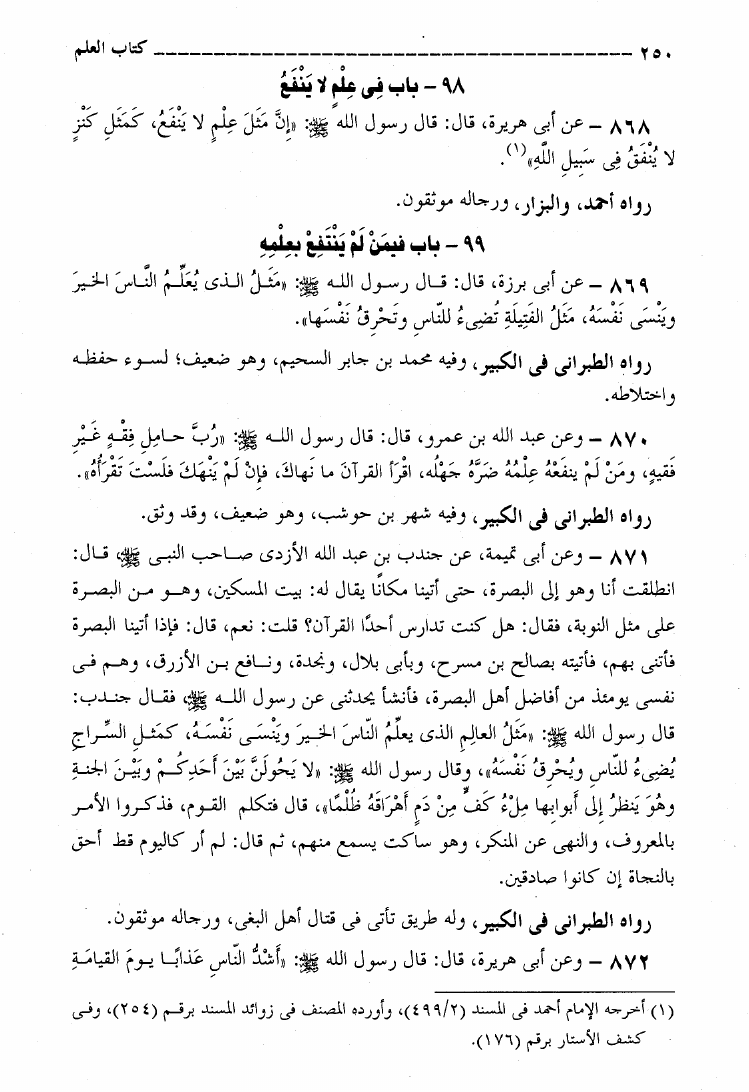 ٢٥٠ ــــــــــــــــــــــــــــــــــــــــــــــــ كتاب العلم
٩٨ - باب فِى عِلْمٍ لا يَنْفَعُ
٨٦٨ – عن أبى هريرة، قال: قال رسول الله ﷺ: «إِنَّ مَثَلَ عِلْمٍ لا يَنْفَعُ، كَمَثَلِ كَنْزٍ
لا يُنْفَقُ فِى سَبِيلِ اللَّهِ»(١).
رواه أحمد، والبزار، ورجاله موثقون.
٩٩ - باب فيمَنْ لَمْ يَنْتَفِعْ بعِلْمِهِ
٨٦٩ – عن أبى برزة، قال: قال رسول الله ﷺ: «مَثَلُ الذى يُعَلِّمُ النَّاسَ الخيرَ
ويَنْسَى نَفْسَهُ، مَثَلُ الفَتِيلَةِ تُضِىءُ للنَّاسِ وتَحْرِقُ نَفْسَها».
رواه الطبرانى فى الكبير، وفيه محمد بن جابر السحيم، وهو ضعيف؛ لسوء حفظه
واختلاطه.
٨٧٠ – وعن عبد الله بن عمرو، قال: قال رسول الله ﷺ: «رُبَّ حامِلِ فِقْهٍ غَيْرِ
فَقيهٍ، ومَنْ لَمْ ينفَعْهُ عِلْمُهُ ضَرَّهُ جَهْلُه، اقْرَأ القرآنَ ما نَهاكَ، فإنْ لَمْ يَنْهَكَ فلَسْتَ تَقْرَأُهُ».
رواه الطبرانى فى الكبير، وفيه شهر بن حوشب، وهو ضعيف، وقد وثق.
٨٧١ – وعن أبى تميمة، عن جندب بن عبد الله الأزدى صاحب النبى ﷺ، قال:
انطلقت أنا وهو إلى البصرة، حتى أتينا مكانًا يقال له: بيت المسكين، وهو من البصرة
على مثل النوبة، فقال: هل كنت تدارس أحدًا القرآن؟ قلت: نعم، قال: فإذا أتينا البصرة
فأتنى بهم، فأتيته بصالح بن مسرح، وبأبى بلال، ونجدة، ونافع بن الأزرق، وهم فى
نفسى يومئذ من أفاضل أهل البصرة، فأنشأ يحدثنى عن رسول الله ﷺ، فقال جندب:
قال رسول الله ﷺ: «مَثَلُ العالِمِ الذى يعلِّمُ النّاسَ الخيرَ ويَنْسَى نَفْسَهُ، كمَثلِ السِّراجِ
يُضِىءُ للنّاسِ ويُحْرِقُ نَفْسَهُ»، وقال رسول الله ﷺ: «لا يَحُولَنَّ بَيْنَ أَحَدِكُمْ وبَيْنَ الجنةِ
وهُوَ يَنظرُ إلى أبوابها مِلْءُ كَفٍّ مِنْ دَمٍ أَهْرَاقَهُ ظُلْمًا»، قال فتكلم القوم، فذكروا الأمر
بالمعروف، والنهى عن المنكر، وهو ساكت يسمع منهم، ثم قال: لم أر كاليوم قط أحق
بالنجاة إن كانوا صادقين.
رواه الطبرانى فى الكبير، وله طريق تأتى فى قتال أهل البغى، ورجاله موثقون.
٨٧٢ – وعن أبى هريرة، قال: قال رسول الله ﷺ: «أَشَدُّ النّاسِ عَذابًا يومَ القيامَةِ
(١) أخرجه الإمام أحمد فى المسند (٤٩٩/٢)، وأورده المصنف فى زوائد المسند برقم (٢٥٤)، وفى
كشف الأستار برقم (١٧٦).